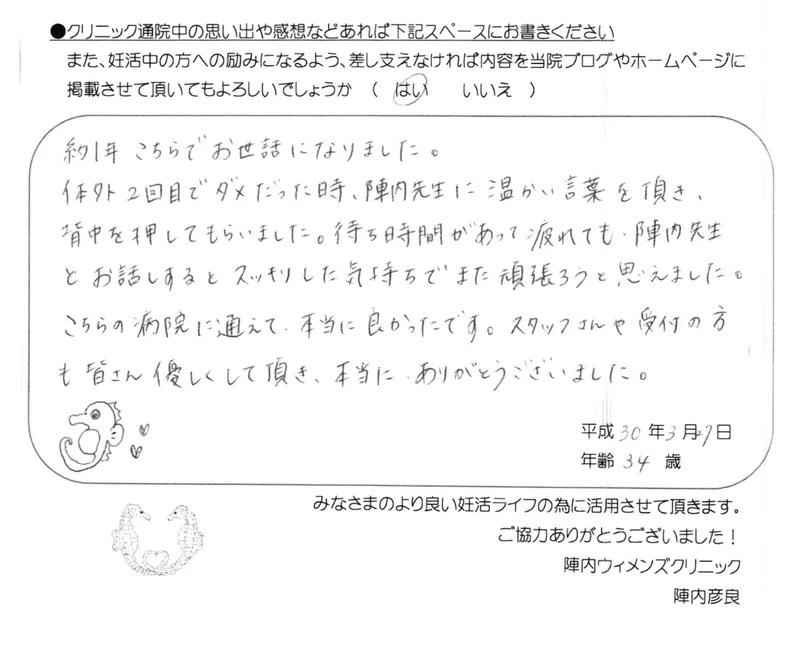 ●クリニック通院中の思い出や感想などあれば下記スペースにお書きください
また、妊活中の方への励みになるよう、差し支えなければ内容を当院ブログやホームページに
掲載させて頂いてもよろしいでしょうか （ はい いいえ ）
約1年 こちらで お世話になりました。
体外2回目でダメだった時、陣内先生に 温かい言葉を頂き、
背中を押してもらいました。待ち時間があって疲れても、陣内先生
と お話しすると スッキリした気持ちで また 頑張ろうと思えました。
こちらの病院に通えて、本当に良かったです。スタッフさんや受付の方
も 皆さん 優しくして頂き、本当に、ありがとうございました。
平成 30 年 3 月 27 日
年齢 34 歳
みなさまのより良い妊活ライフの為に活用させて頂きます。
ご協力ありがとうございました！
陣内ウィメンズクリニック
陣内彦良